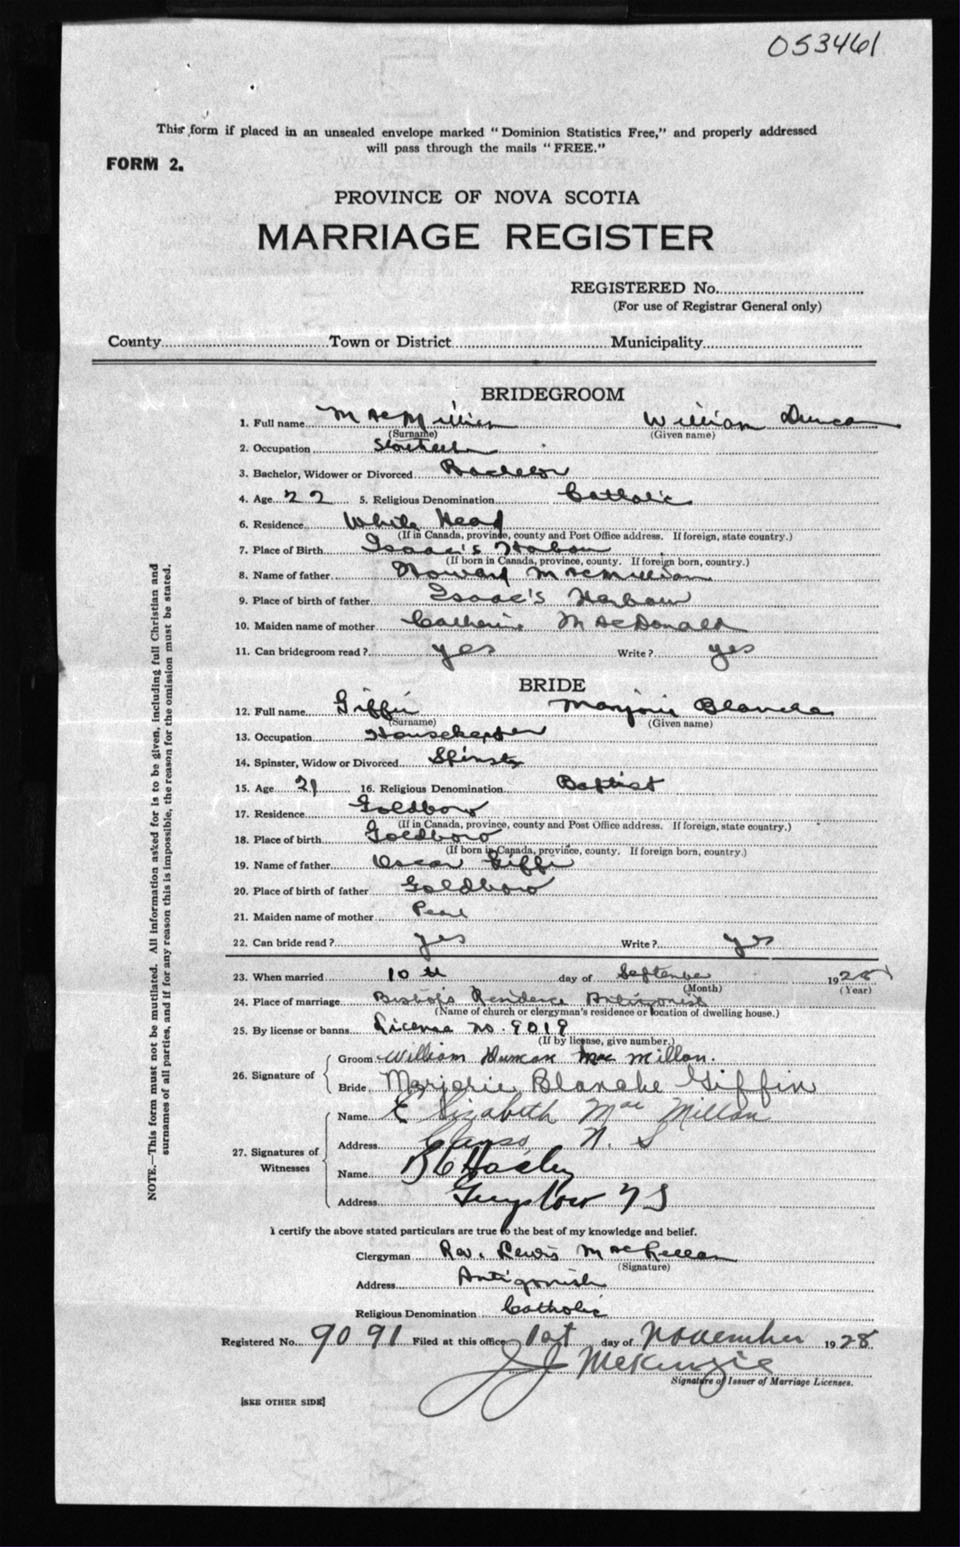 053461
This form if placed in an unsealed envelope marked "Dominion Statistics Free," and properly addressed
will pass through the mails "FREE."
FORM 2.
PROVINCE OF NOVA SCOTIA
MARRIAGE REGISTER
REGISTERED No.
(For use of Registrar General only)
County Town or District Municipality
BRIDEGROOM
1. Full name MacMillan William Duncan
(Surname) (Given name)
2. Occupation
3. Bachelor, Widower or Divorced Bachelor
4. Age 22 5. Religious Denomination Catholic
6. Residence White Head
(If in Canada, province, county and Post Office address. If foreign, state country.)
7. Place of Birth Isaac's Harbour
(If born in Canada, province, county. If foreign born, country.)
8. Name of father Howard MacMillan
9. Place of birth of father Isaac's Harbour
10. Maiden name of mother Catherine MacDonald
11. Can bridegroom read? yes Write? yes
BRIDE
12. Full name Giffin Marjorie Blanche
(Surname) (Given name)
13. Occupation Housekeeper
14. Spinster, Widow or Divorced Spinster
15. Age 21 16. Religious Denomination Baptist
17. Residence Goldboro
(If in Canada, province, county and Post Office address. If foreign, state country.)
18. Place of birth Goldboro
(If born in Canada, province, county. If foreign born, country.)
19. Name of father Oscar Giffin
20. Place of birth of father Goldboro
21. Maiden name of mother Pearl
22. Can bride read? yes Write? yes
23. When married 10th day of September 1928
(Month) (Year)
24. Place of marriage Bishop's Residence Antigonish
(Name of church or clergyman's residence or location of dwelling house.)
25. By license or banns License no. 9019
(If by license, give number.)
26. Signature of
Groom William Duncan Mac Millan.
Bride Marjorie Blanche Giffin
27. Signatures of Witnesses
Name Elizabeth Mac Millan
Address Canso N. S
Name
Address Guysboro N S
I certify the above stated particulars are true to the best of my knowledge and belief.
Clergyman Rev. Lewis MacLellan
(Signature)
Address Antigonish
Religious Denomination Catholic
Registered No. 9091 Filed at this office 1st day of November 1928
J J McKenzie
Signature of Issuer of Marriage Licenses.
[SEE OTHER SIDE]
NOTE.—This form must not be mutilated. All information asked for is to be given, including full Christian and
surnames of all parties, and if for any reason this is impossible, the reason for the omission must be stated.